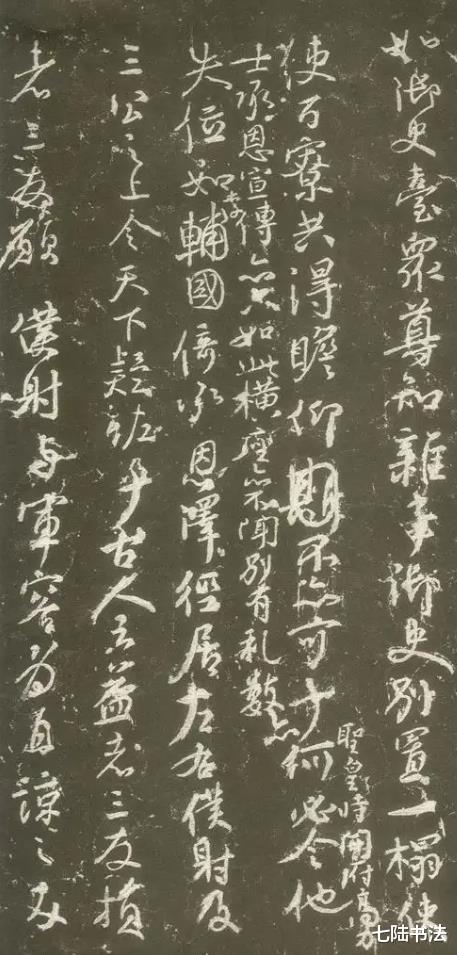 如御史臺眾尊知雜事御史別置一榻使
使百寮共得瞻仰不亦可乎何必令他
聖皇時開府高力
士承恩宣傳亦只如此橫座亦不聞別有礼數亦
失位如李輔國倚承恩澤徑居左右僕射及
三公之上令天下疑怪乎古人云益者三友損
者三友願僕射與軍容為直諒之友
七陆书法